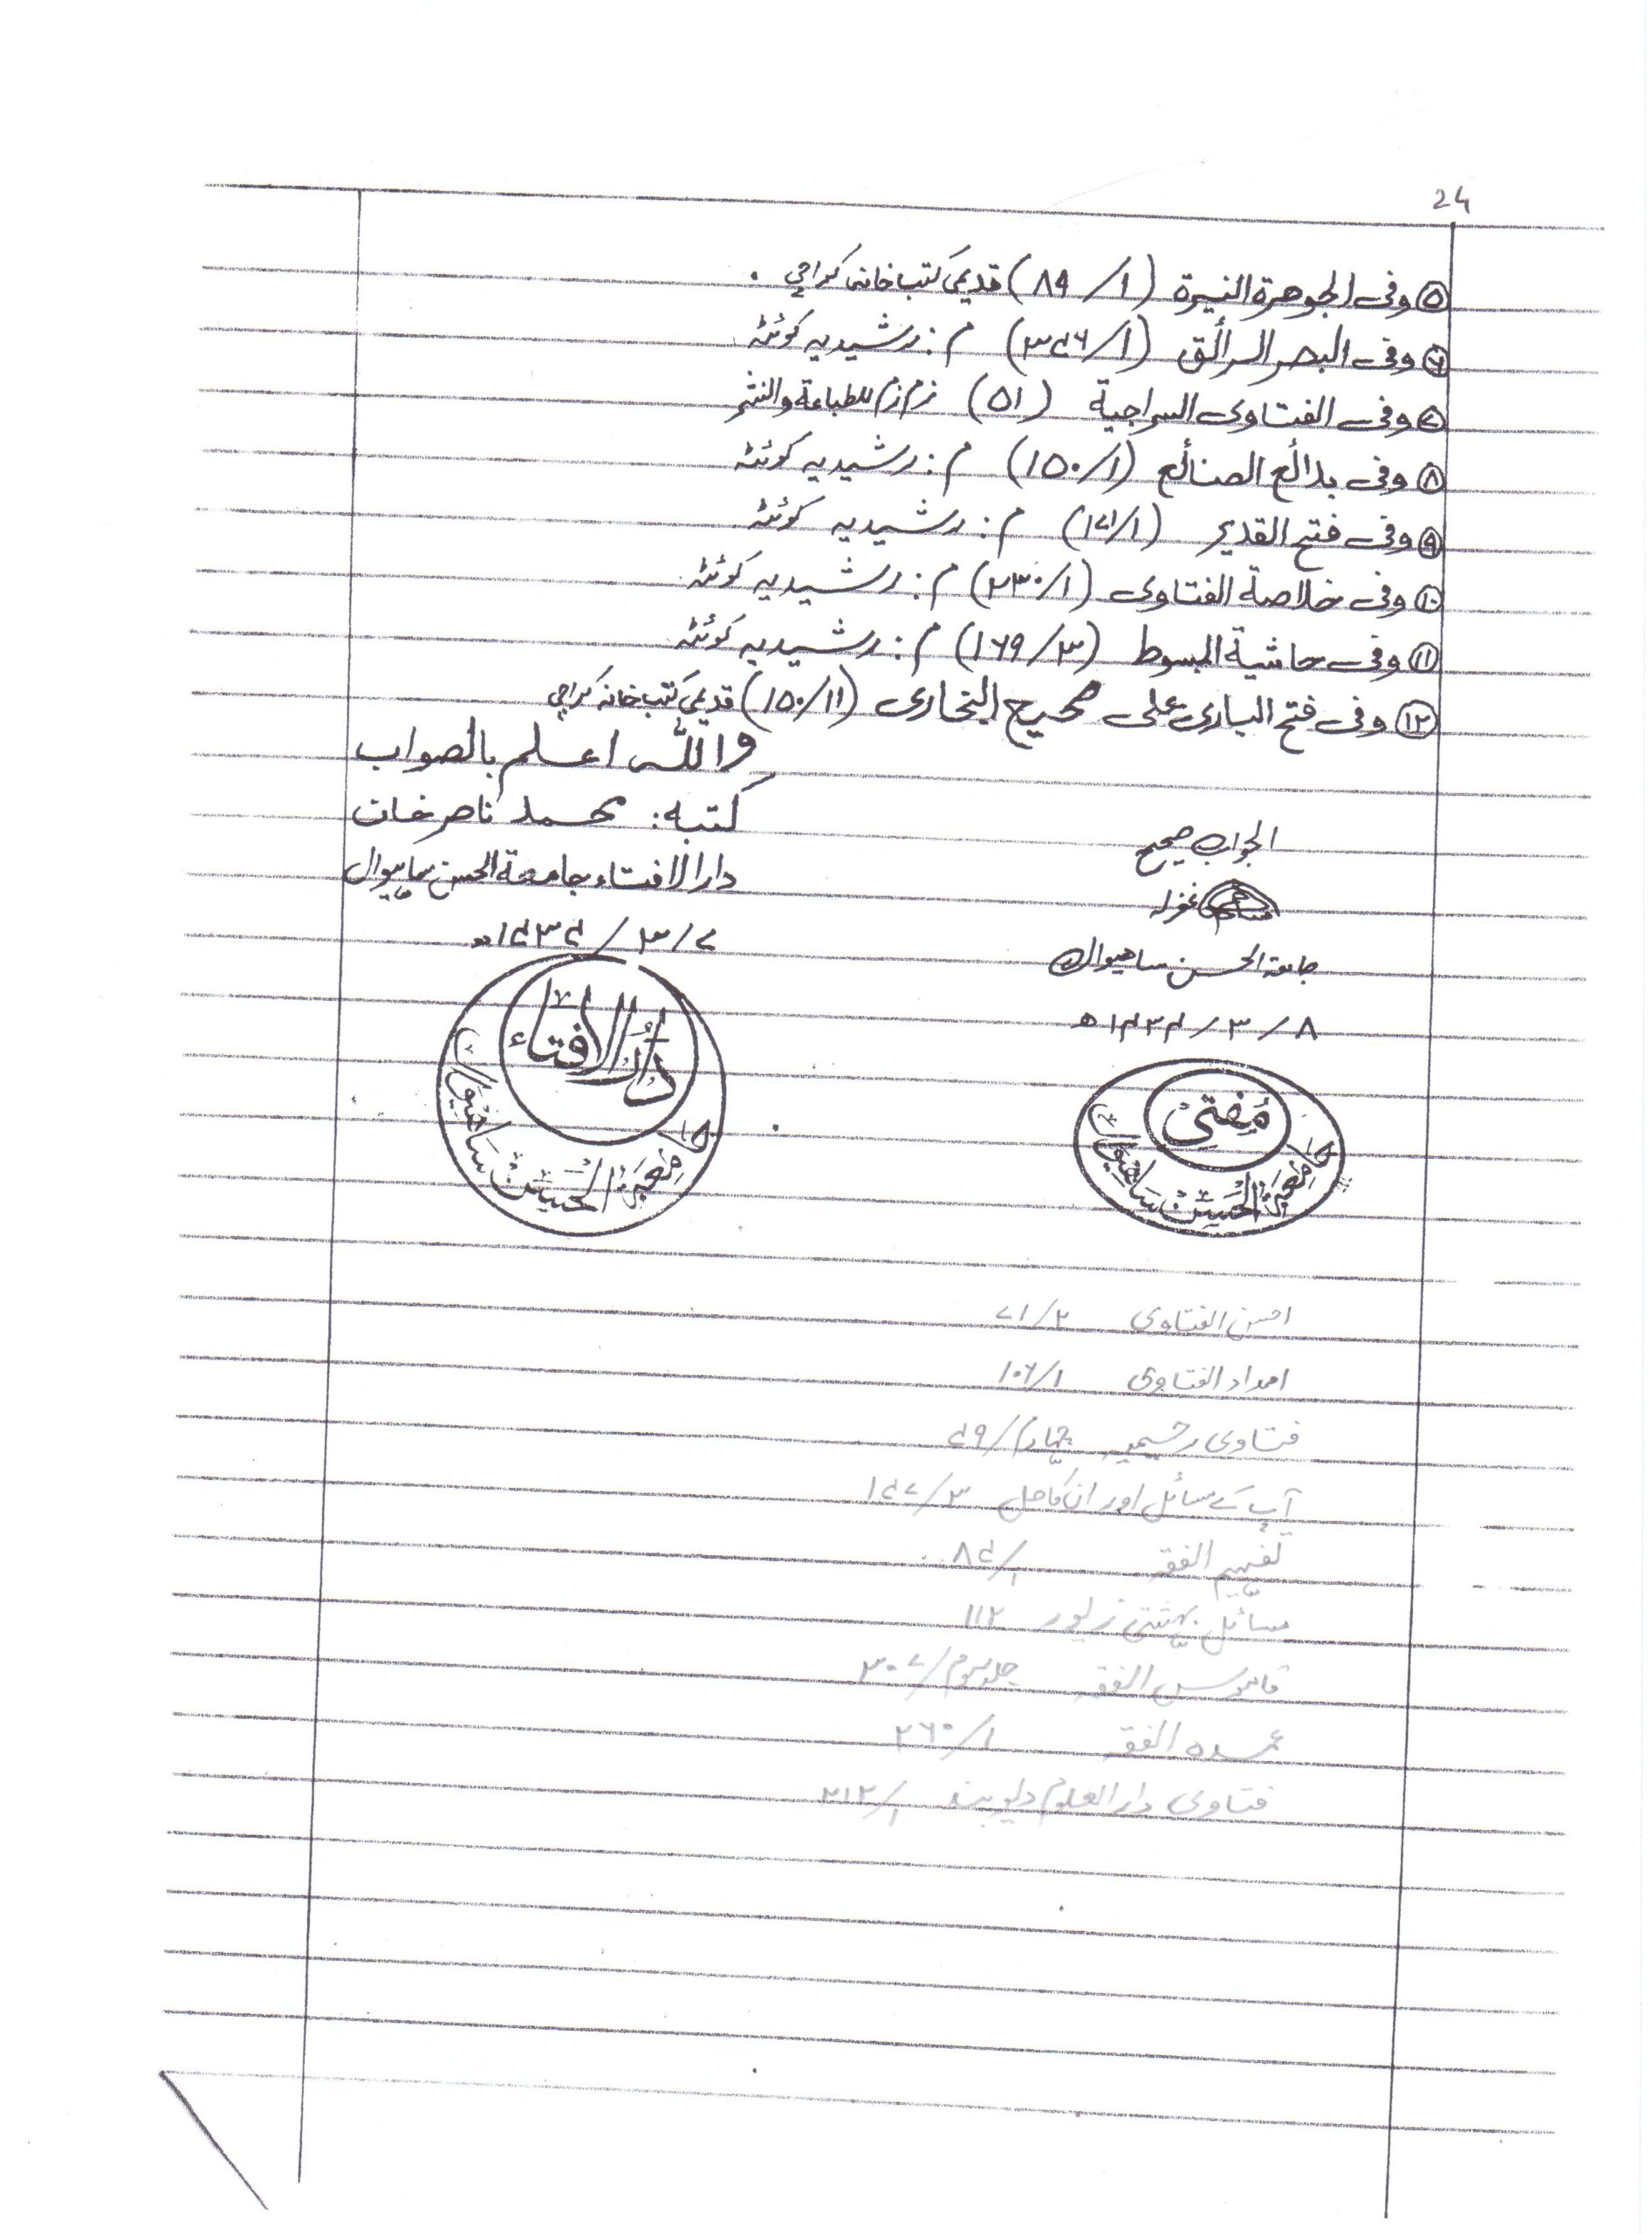 24
⑤ وفی الجوھرۃ النیرۃ (۱/۸۹) قدیمی کتب خانہ کراچی.
⑥ وفی البحر الرائق (۱/۳۴۶) م: رشیدیہ کوئٹہ
⑦ وفی الفتاوی السراجیۃ (۵۱) زم زم للطباعۃ والنشر
⑧ وفی بدائع الصنائع (۱/۱۵۰) م: رشیدیہ کوئٹہ
⑨ وفی فتح القدیر (۱/۱۷۱) م: رشیدیہ کوئٹہ
⑩ وفی خلاصۃ الفتاوی (۱/۲۳۰) م: رشیدیہ کوئٹہ
⑪ وفی حاشیۃ المبسوط (۳/۱۶۹) م: رشیدیہ کوئٹہ
⑫ وفی فتح الباری علی صحیح البخاری (۱۱/۱۵۰) قدیمی کتب خانہ کراچی
واللہ اعلم بالصواب
کتبہ: محمد ناصر خان
دارالافتاء جامعۃ الحسن ساہیوال
۷/۳/۱۴۳۴ھ
الجواب صحیح
غفرلہ
جامعۃ الحسن ساھیوال
۸/۳/۱۴۳۴ھ
دارالافتاء
جامعۃ الحسن ساھیوال
مفتی
جامعۃ الحسن ساھیوال
احسن الفتاوی ۲/۷۱
امداد الفتاوی ۱/۱۰۶
فتاوی رحیمیہ چہارم/۴۹
آپ کے مسائل اور ان کا حل ۳/۱۴۷
تفہیم الفقہ ۱/۸۴
مسائل بہشتی زیور ۱۱۲
قاموس الفقہ جلد سوم/۳۰۷
عمدہ الفقہ ۱/۲۶۰
فتاوی دار العلوم دیوبند ۱/۲۱۲